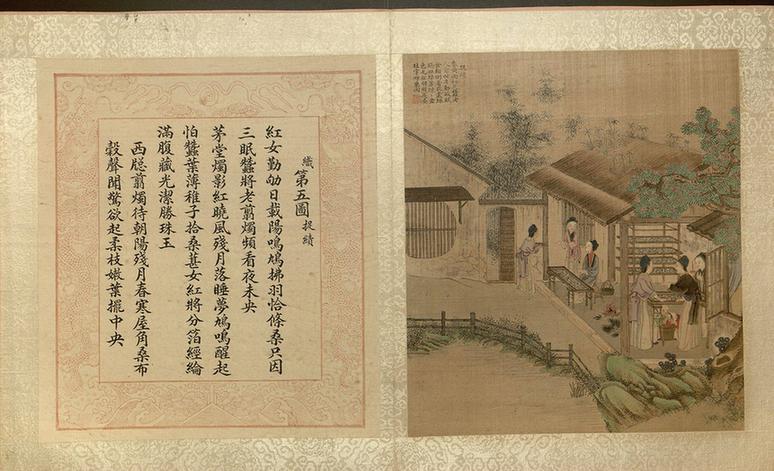 織第五圖捉績
紅女勤劬日載陽鳴鳩拂羽恰條桑只因
三眠蠶將老翦燭頻看夜未央
茅堂燭影紅曉風殘月落睡夢鳩鳴醒起
怕蠶葉薄稚子拾桑葚女紅將分箔經綸
滿腹藏光潔勝珠玉
西牕翦燭待朝陽殘月春寒屋角桑布
穀聲聞驚欲起柔枝嫩葉擺中央